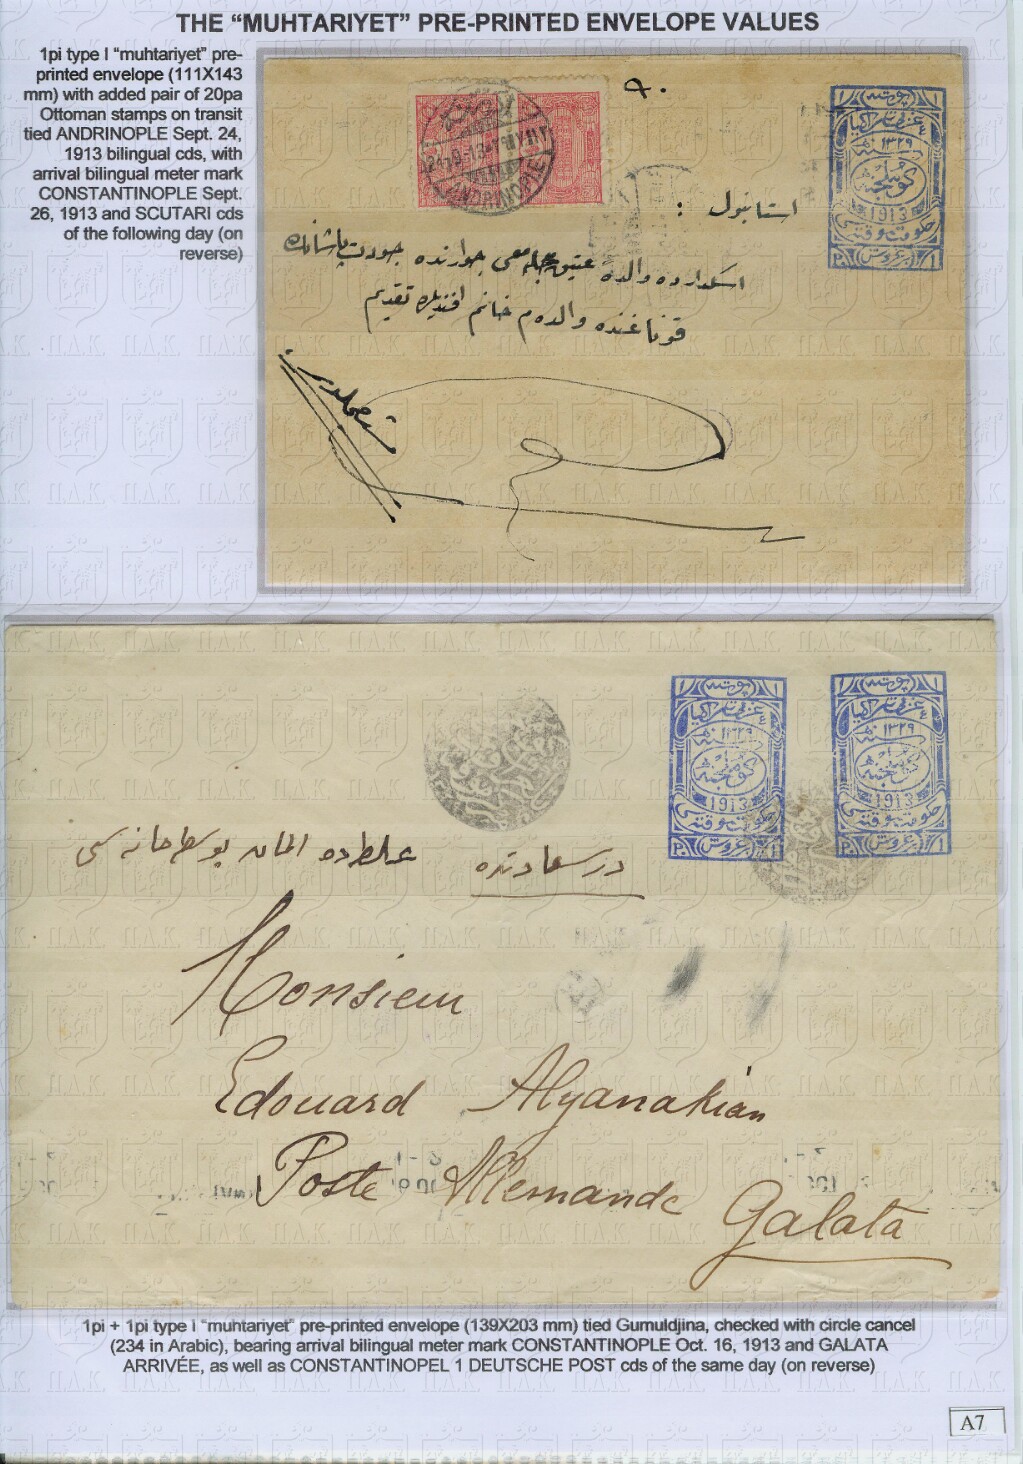 THE “MUHTARIYET” PRE-PRINTED ENVELOPE VALUES
1pi type I “muhtariyet” pre-
printed envelope (111X143
mm) with added pair of 20pa
Ottoman stamps on transit
tied ANDRINOPLE Sept. 24,
1913 bilingual cds, with
arrival bilingual meter mark
CONSTANTINOPLE Sept.
26, 1913 and SCUTARI cds
of the following day (on
reverse)
ANDRINOPLE
استانبول :
اسكدارده والده عتيق جوارنده جودت پاشانك
قوناغنده والده م خانم افندي يه تقديم
پوسته
١٣٢٩
1913
غروش
پوسته
١٣٢٩
1913
غروش
پوسته
١٣٢٩
1913
غروش
درسعادتده غلطه ده المان پوسطه خانه سى
Monsieur
Edouard Alyanakian
Poste Allemande
Galata
1pi + 1pi type I “muhtariyet” pre-printed envelope (139X203 mm) tied Gumuldjina, checked with circle cancel
(234 in Arabic), bearing arrival bilingual meter mark CONSTANTINOPLE Oct. 16, 1913 and GALATA
ARRIVÉE, as well as CONSTANTINOPEL 1 DEUTSCHE POST cds of the same day (on reverse)
A7